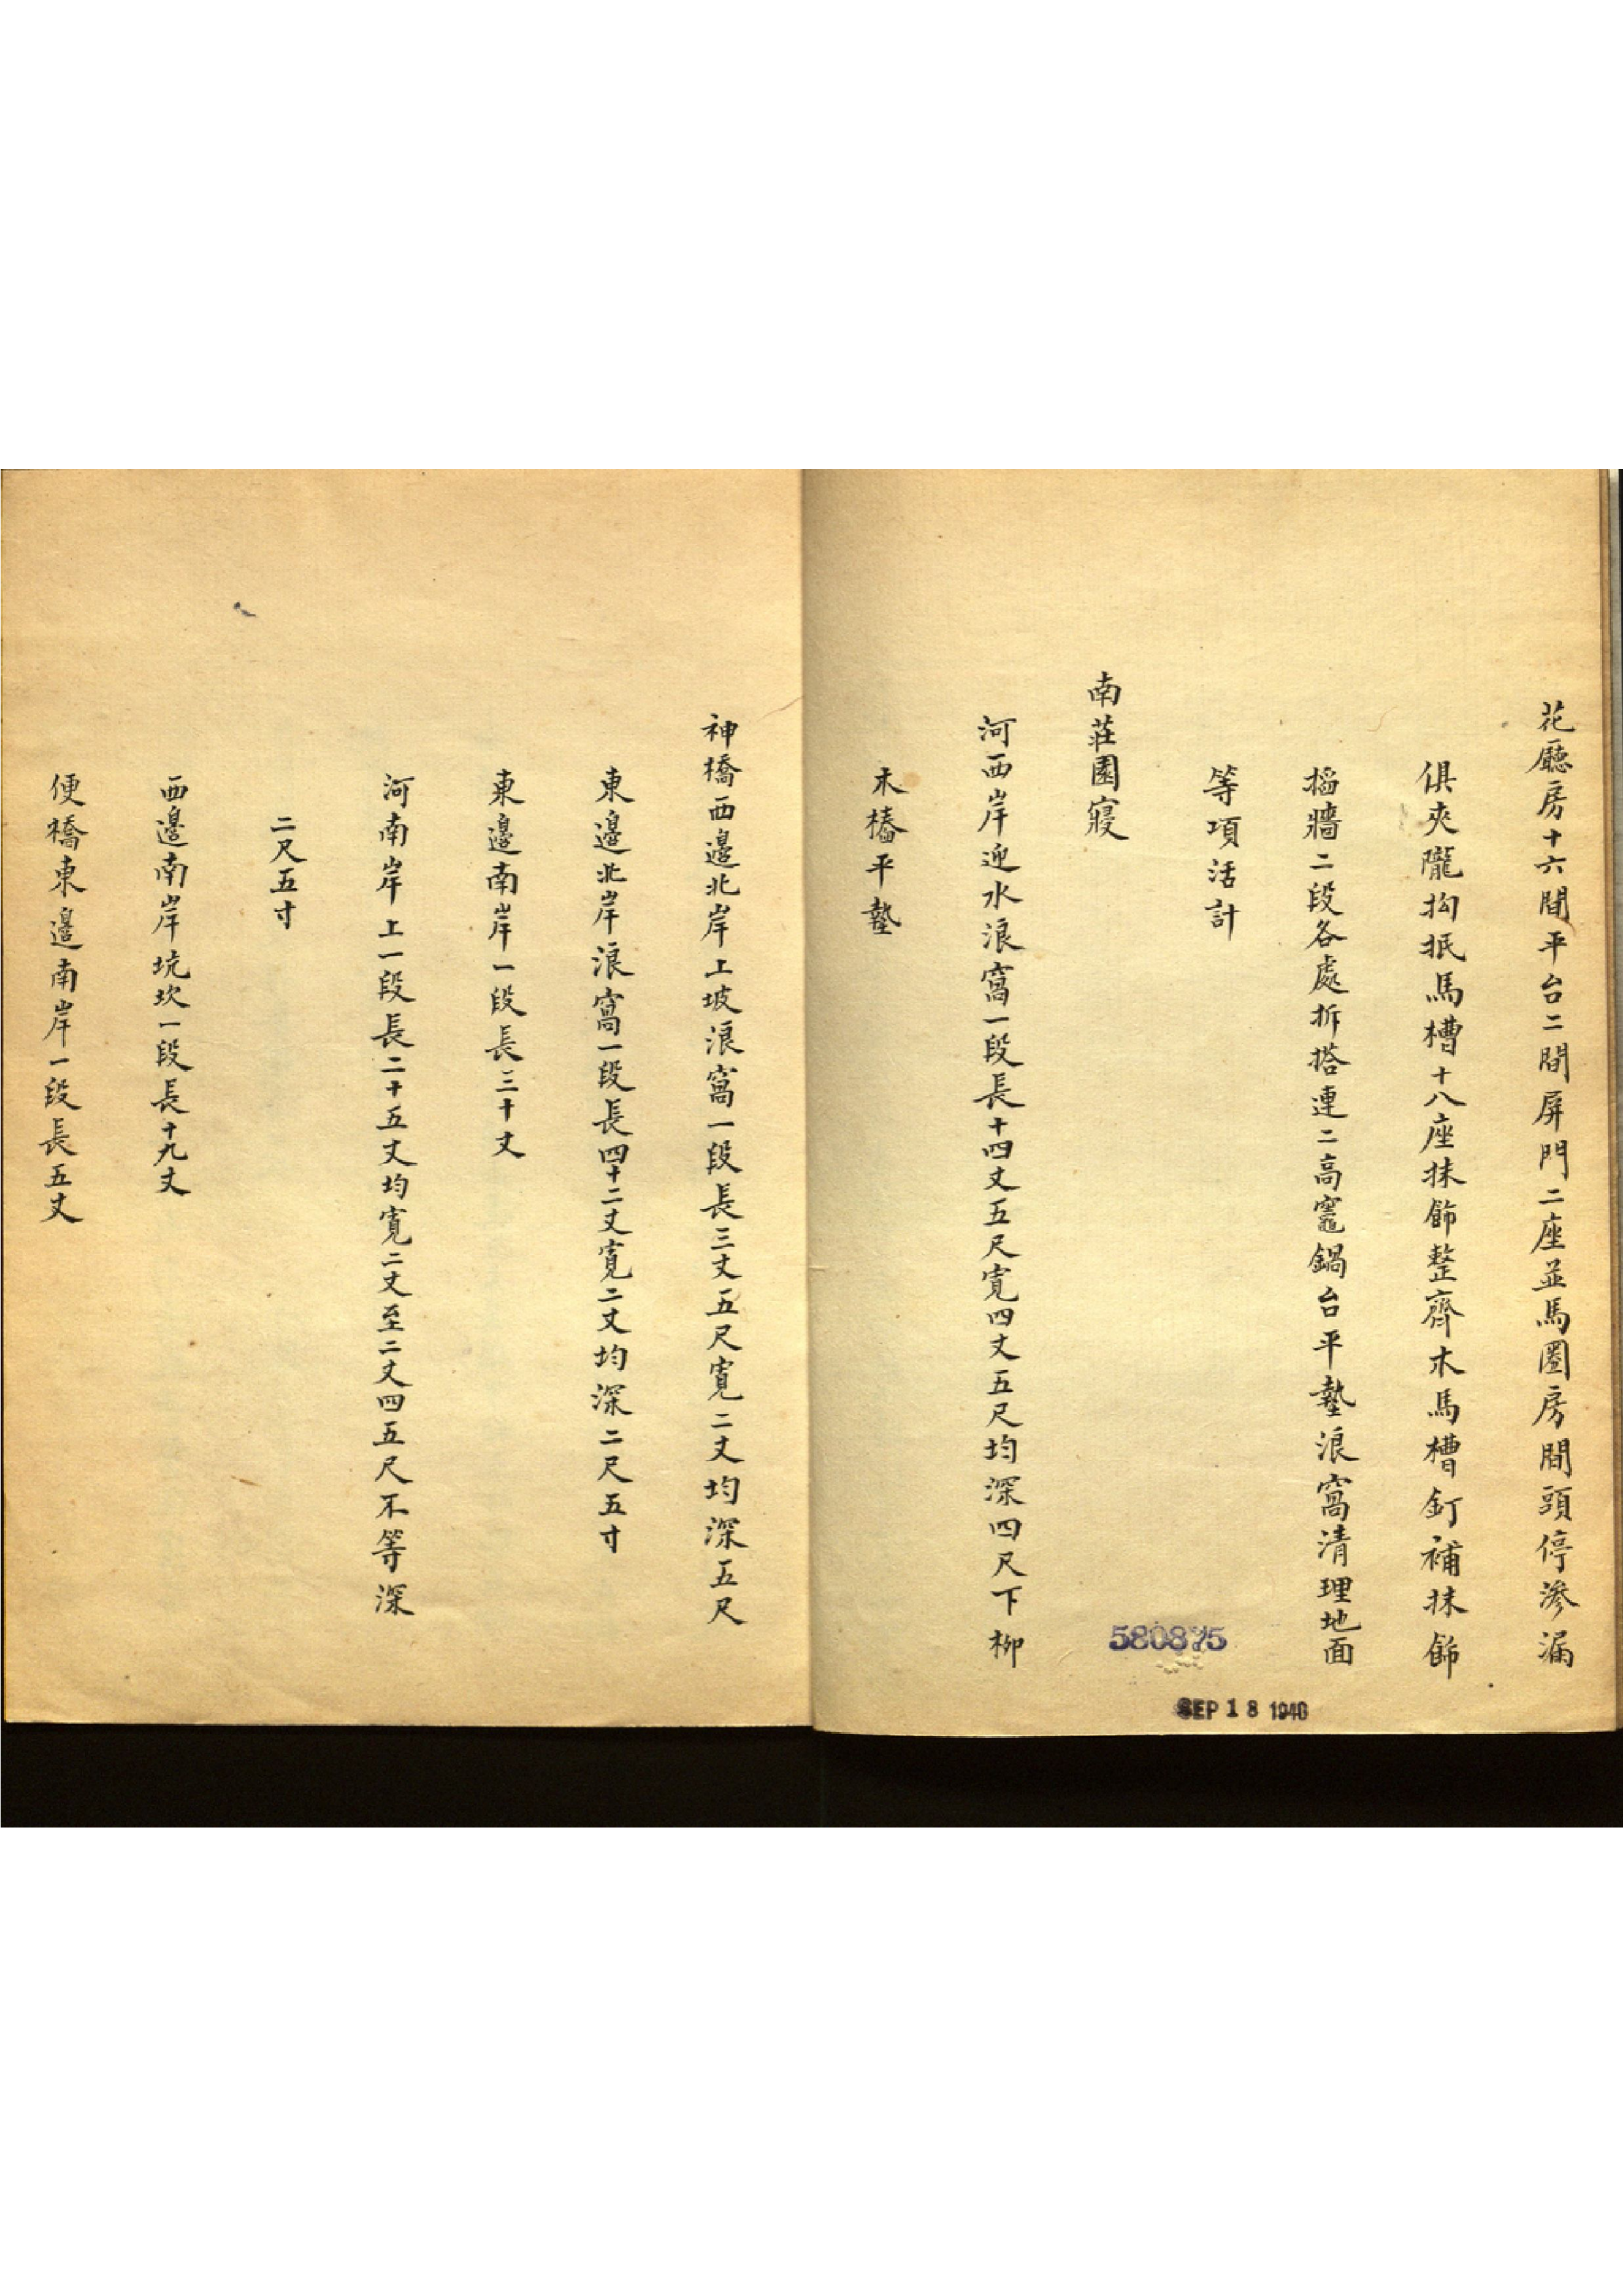 花廳房十六間平台二間屏門二座並馬圈房間頭停滲漏
俱夾隴抅抿馬槽十八座抹餙整齊木馬槽釘補抹餙
搯牆二段各處拆搭連二高竈鍋台平墊浪窩清理地面
等項活計
南莊園寢
河西岸迎水浪窩一段長十四丈五尺寬四丈五尺均深四尺下柳
木樁平墊
神橋西邊北岸上坡浪窩一段長三丈五尺寬二丈均深五尺
東邊北岸浪窩一段長四十二丈寬二丈均深二尺五寸
東邊南岸一段長三十丈
河南岸上一段長二十五丈均寬二丈至二丈四五尺不等深
二尺五寸
西邊南岸坑坎一段長十九丈
便橋東邊南岸一段長五丈
580875
SEP 18 1940